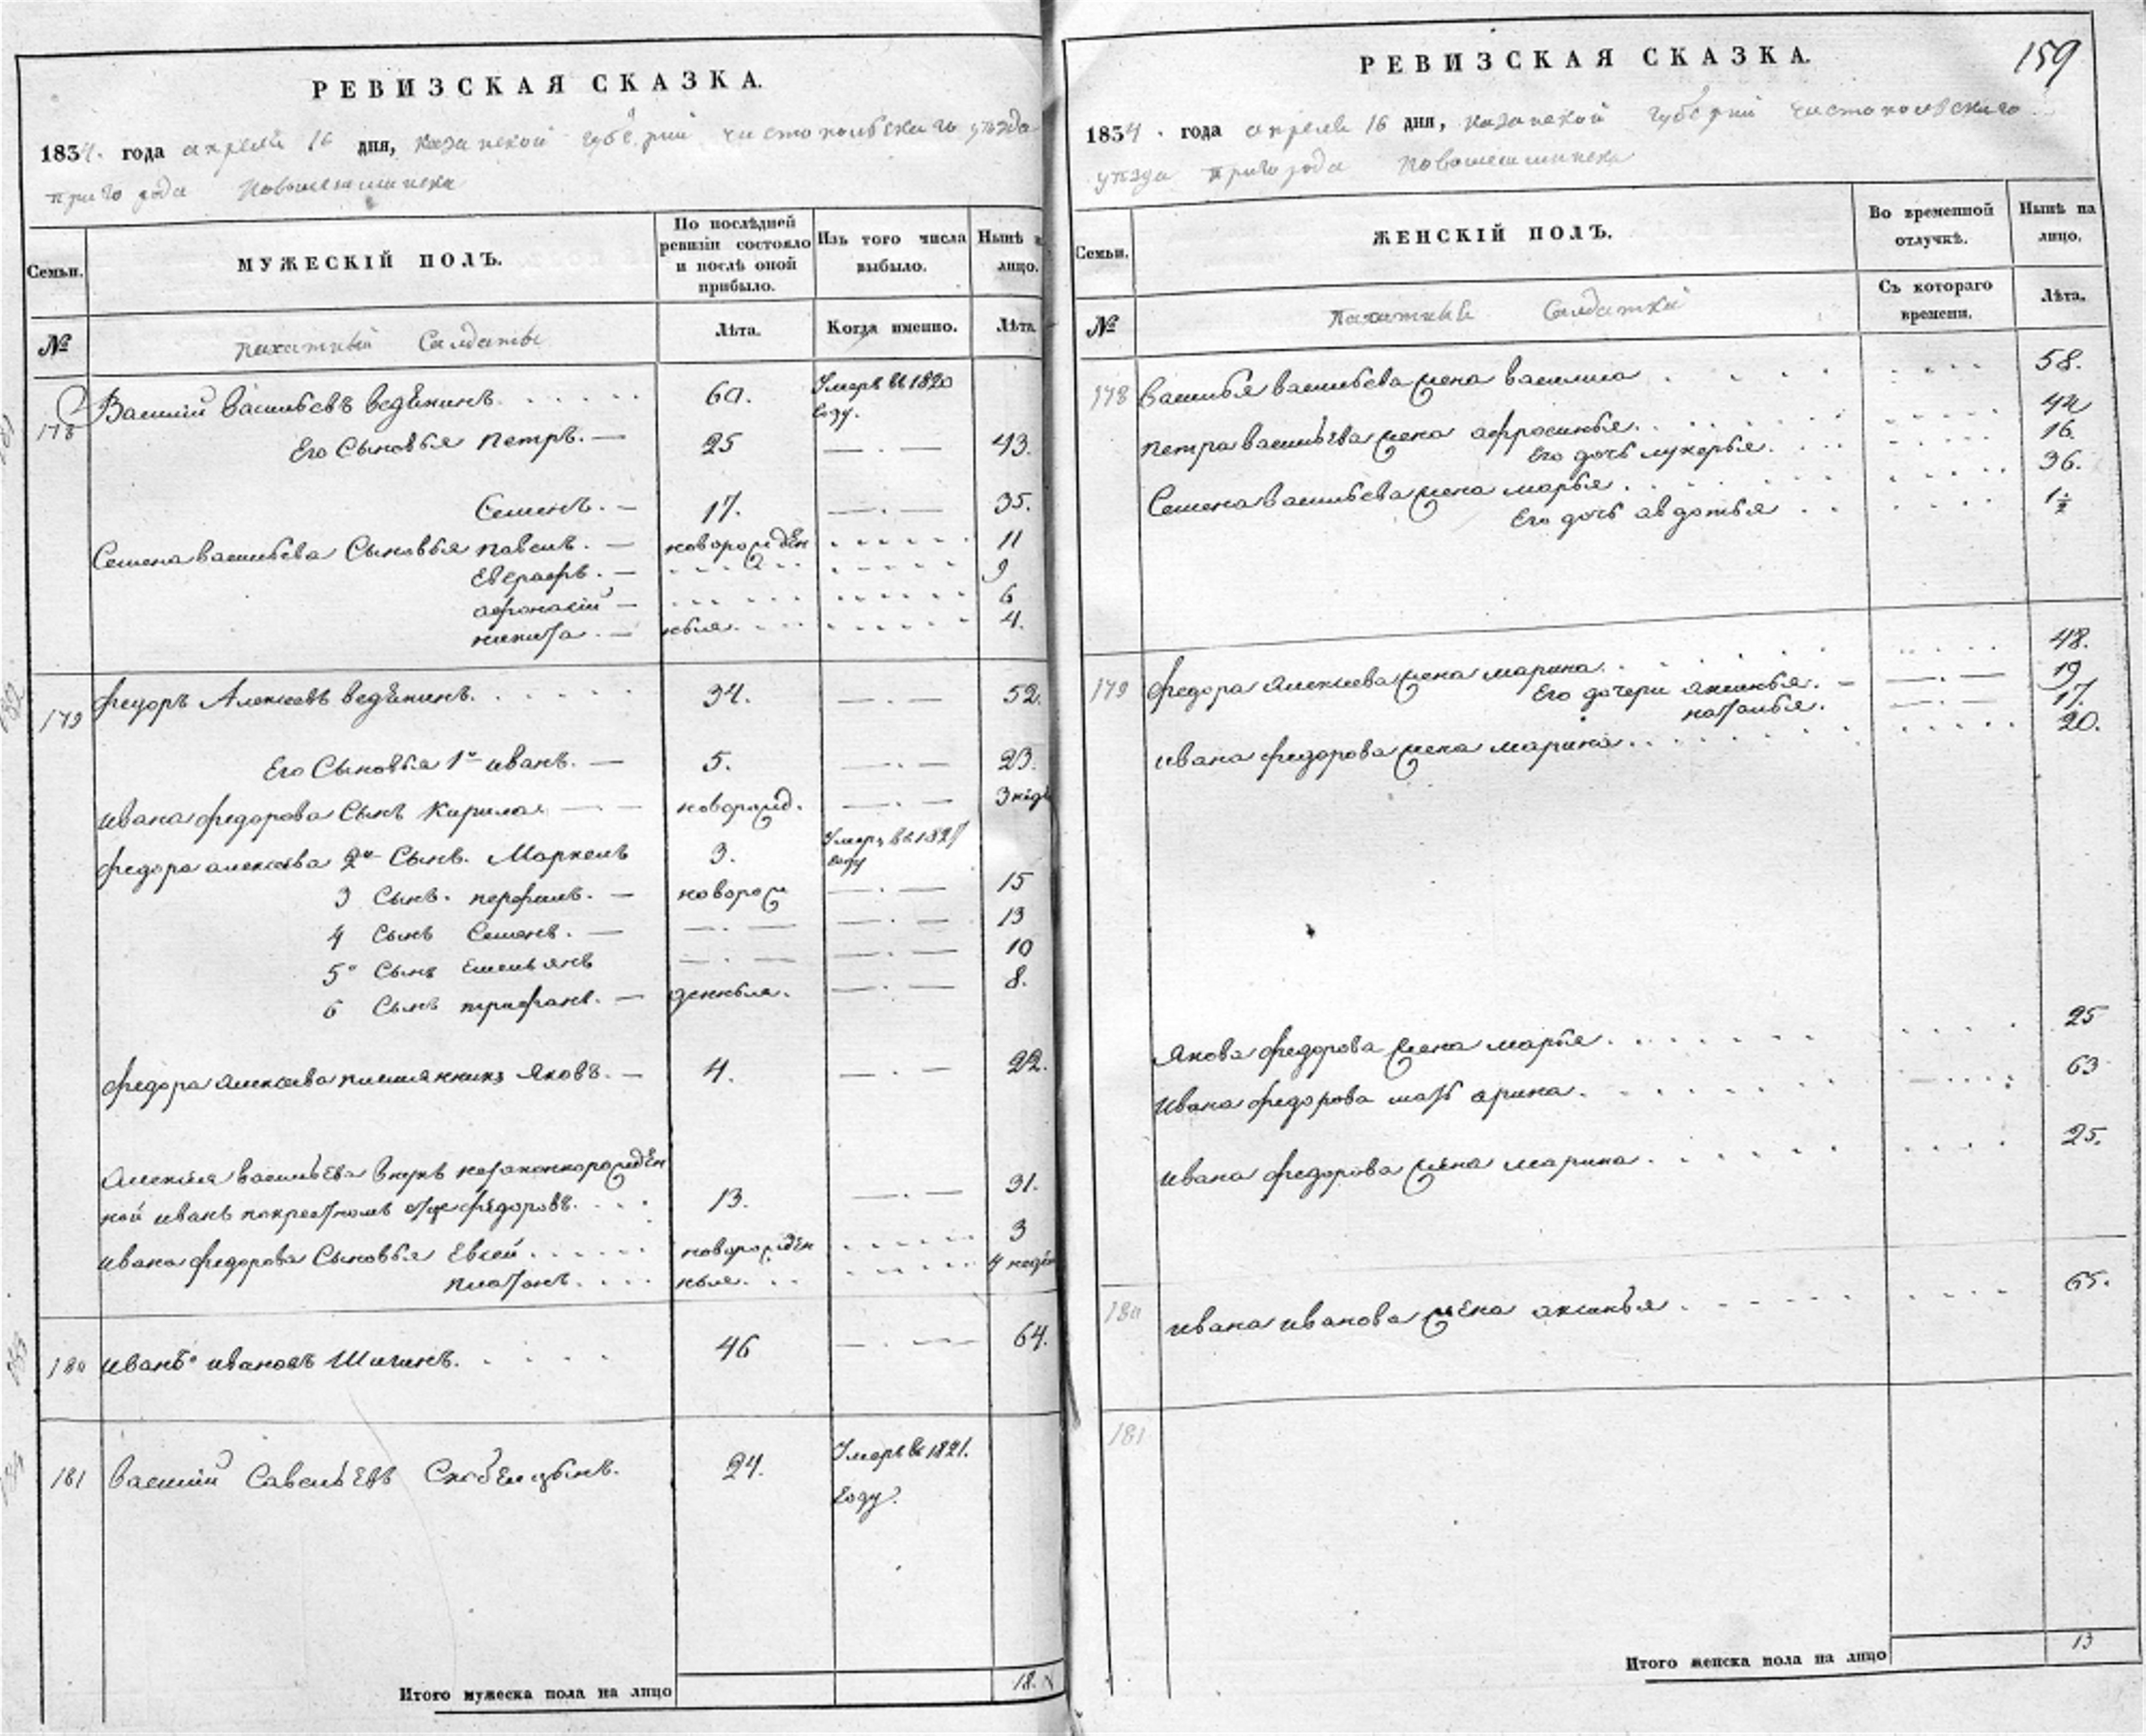 РЕВИЗСКАЯ СКАЗКА.
1834. года апреля 16 дня, казанской губернии чистопольскаго уѣзда
пригорода Новошешминска
Семьи.
МУЖЕСКІЙ ПОЛЪ.
По послѣдней ревизіи состояло и послѣ оной прибыло.
Изъ того числа выбыло.
Нынѣ на лицо.
№
пахатныи Салдаты
Лѣта.
Когда именно.
Лѣта.
178 Василий васильевъ ведѣнинъ. 60. Умеръ въ 1820 году.
Его Сыновья Петръ. — 25 — . — 43.
Семенъ. — 17. — . — 35.
Семена васильева Сыновья павелъ. — новорожден 11
Евграфъ. — 9
афонасий — 6
никита. — ныя. 4.
179 федоръ Алексеевъ ведѣнинъ. 34. — . — 52.
Его Сыновья 1й иванъ. — 5. — . — 23.
ивана федорова Сынъ Кирила — новорожд. — . — 3 неде
федора алексеева 2й Сынъ. Маркелъ 3. Умеръ въ 1827 году
3 Сынъ. перфилъ. — новорож — . — 15
4 Сынъ Семенъ. — — . — 13
5й Сынъ Емельянъ — . — 10
6 Сынъ трифанъ. — денныя. — . — 8.
федора алексеева племянникъ Яковъ. — 4. — . — 22.
Алексея васильева внукъ незаконнорожден
ной иванъ покрестномъ отце федоровъ. 13. — . — 31.
ивана федорова Сыновья Евсей. новорожден 3
платонъ. ныя. 4 недели
180 иванъ ивановъ Шигинъ. 46 — . — 64.
181 василий Савельевъ Скобелцынъ. 24. Умеръ въ 1821. году.
Итого мужеска пола на лицо 18.
РЕВИЗСКАЯ СКАЗКА.
159
1834. года апреля 16 дня, казанской губернии чистопольскаго
уѣзда пригорода Новошешминска
Семьи.
ЖЕНСКІЙ ПОЛЪ.
Во временной отлучкѣ.
Нынѣ на лицо.
№
пахатныи Салдатки
Съ котораго времени.
Лѣта.
178 василья васильева жена василиса 58.
петра васильева жена афросинья. 44
Его дочь лукерья. 16.
Семена васильева жена марья. 36.
Его дочь авдотья 1½
179 федора Алексеева жена марина. 48.
Его дочери аксинья. — 19
наталья. 17.
ивана федорова жена марина. 20.
Якова федорова жена марья. 25
ивана федорова мать арина. 63
ивана федорова жена марина. 25.
180 ивана иванова жена аксинья. 65.
181
Итого женска пола на лицо 13